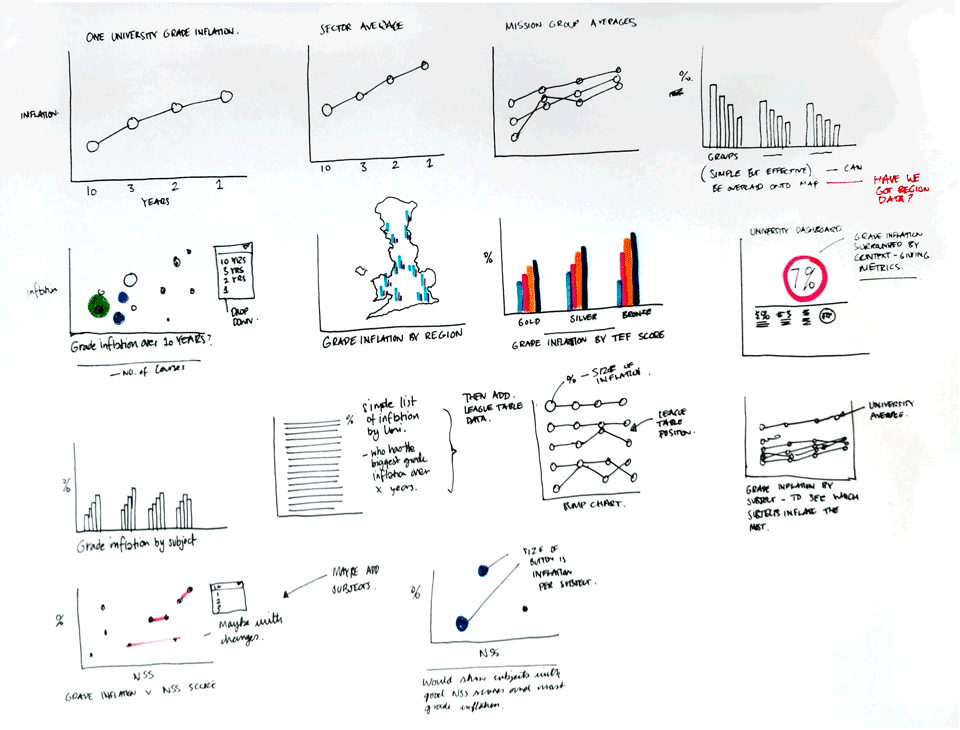 ONE UNIVERSITY GRADE INFLATION.
INFLATION
10 3 2 1
YEARS
SECTOR AVERAGE
10 3 2 1
MISSION GROUP AVERAGES
%
GROUPS
(SIMPLE BUT EFFECTIVE) — CAN
BE OVERLAID ONTO MAP
HAVE WE
GOT REGION
DATA?
Inflation
10 YRS
3 YRS
2 YRS
1
DROP
DOWN.
Grade inflation over 10 YEARS?
— NO. of Courses
GRADE INFLATION BY REGION
%
GOLD
SILVER
BRONZE
GRADE INFLATION BY TEF SCORE
UNIVERSITY DASHBOARD
7%
GRADE INFLATION
SURROUNDED BY
CONTEXT-GIVING
METRICS.
%
Grade inflation by subject
%
Simple list
of inflation
by Uni.
- Who has the
biggest grade
inflation over
x years.
THEN ADD.
LEAGUE TABLE
DATA.
% — SIZE OF
INFLATION.
LEAGUE
TABLE
POSITION.
BUMP CHART.
UNIVERSITY
AVERAGE.
GRADE INFLATION BY
SUBJECT - TO SEE WHICH
SUBJECTS INFLATE THE
MOST.
%
MAYBE ADD
SUBJECTS.
Maybe with
changes.
NSS
GRADE INFLATION V NSS SCORE
%
SIZE OF
BUTTON IS
INFLATION
PER SUBJECT.
NSS
Would show subjects with
good NSS scores and most
grade inflation.